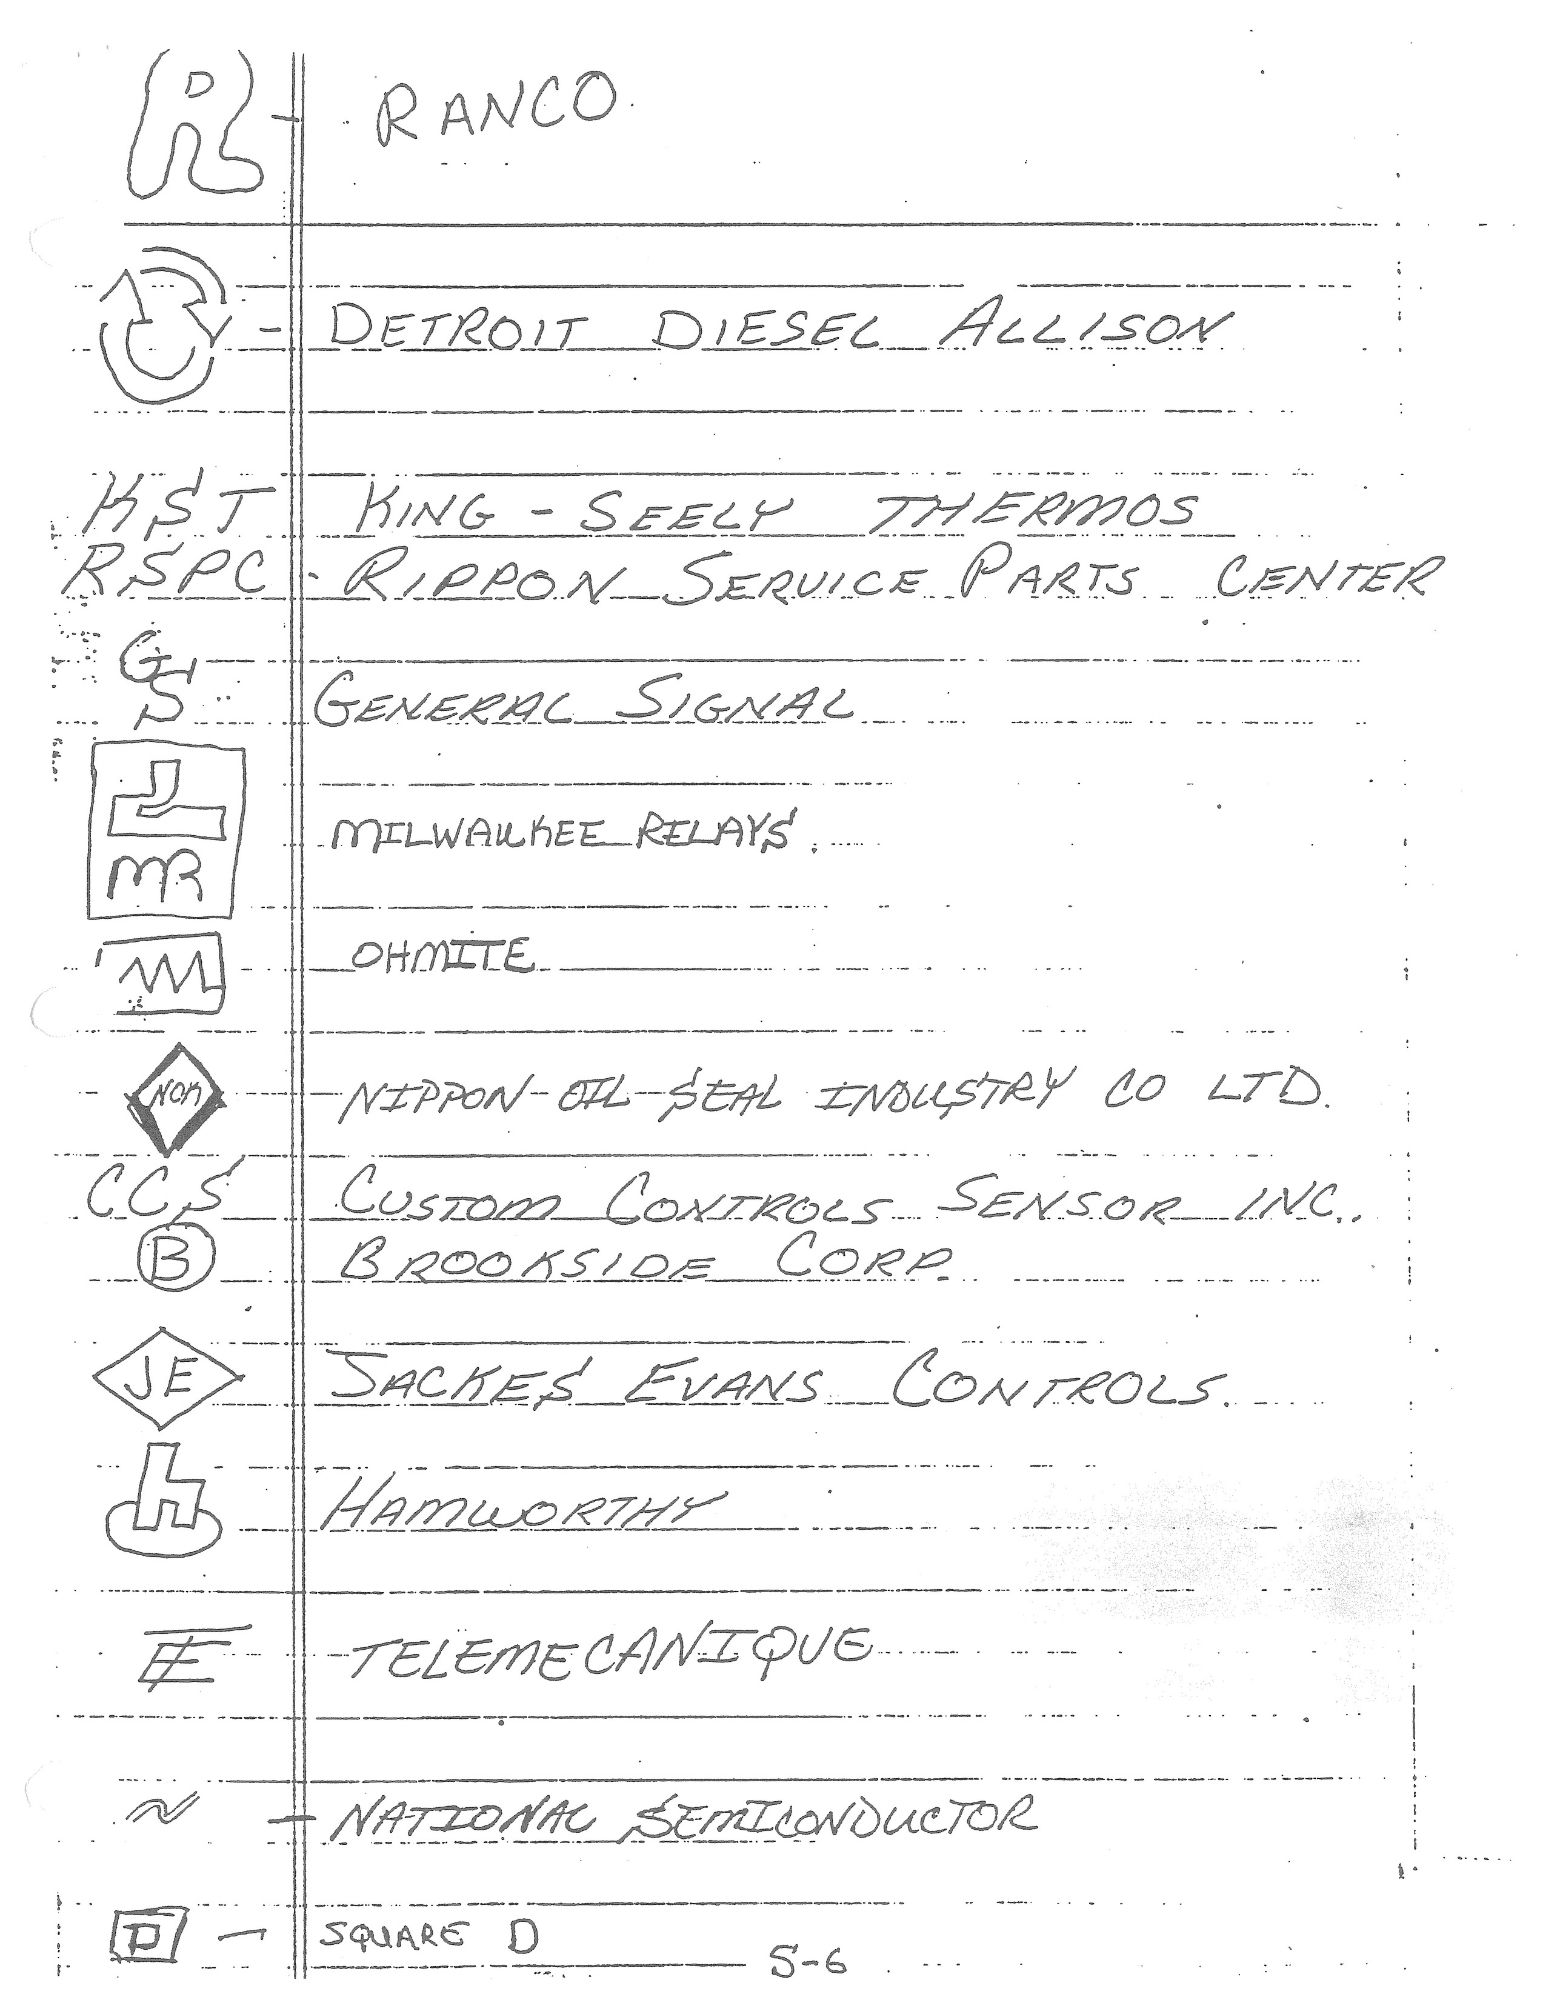 R - RANCO
- DETROIT DIESEL ALLISON
KST KING - SEELY THERMOS
RSPC - RIPPON SERVICE PARTS CENTER
GS GENERAL SIGNAL
MR MILWAUKEE RELAYS.
OHMITE
NOK NIPPON OIL SEAL INDUSTRY CO LTD.
CCS CUSTOM CONTROLS SENSOR INC.
B BROOKSIDE CORP.
JE JACKES EVANS CONTROLS.
h HAMWORTHY
TE TELEMECANIQUE
- NATIONAL SEMICONDUCTOR
D - SQUARE D
S-6